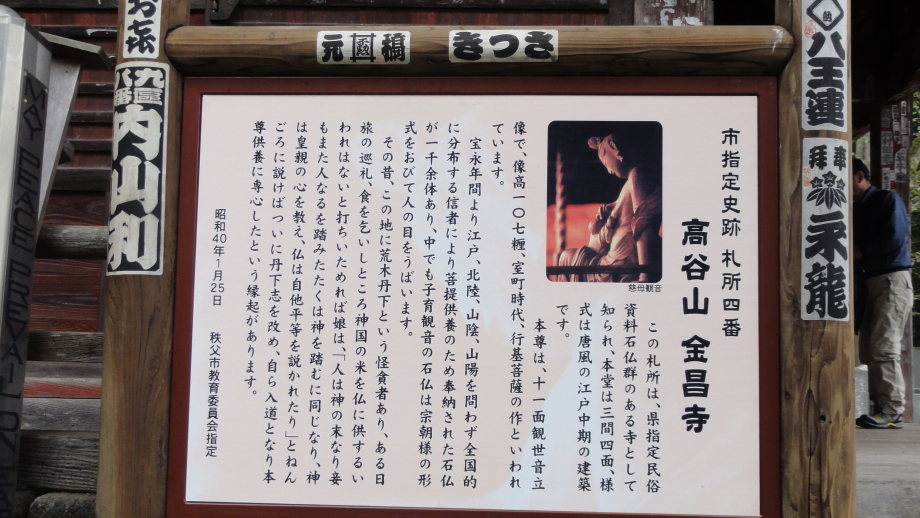 市指定史跡 札所四番
高谷山 金昌寺
この札所は、県指定民俗
資料石仏群のある寺として
知られ、本堂は三間四面、様
式は唐風の江戸中期の建築
です。
本尊は、十一面観世音立
像で、像高一〇七糎、室町時代、行基菩薩の作といわれ
ています。
宝永年間より江戸、北陸、山陰、山陽を問わず全国的
に分布する信者により菩提供養のため奉納された石仏
が一千余体あり、中でも子育観音の石仏は宗朝様の形
式をおびて人の目をうばいます。
その昔、この地に荒木丹下という怪貪者あり、ある日
旅の巡礼、食を乞いしところ神国の米を仏に供するい
われはないと打ちいためれば娘は、「人は神の末なり妾
もまた人なるを踏みたたくは神を踏むに同じなり、神
は皇親の心を教え、仏は自他平等を説かれたり」とねん
ごろに説けばついに丹下志を改め、自ら入道となり本
尊供養に専心したという縁起があります。
昭和40年1月25日 秩父市教育委員会指定
慈母観音
元 橋
きつさ
お㐂
九星
八番
内山利
八王連
拝
永龍
MAY PEACE PREVAIL ON